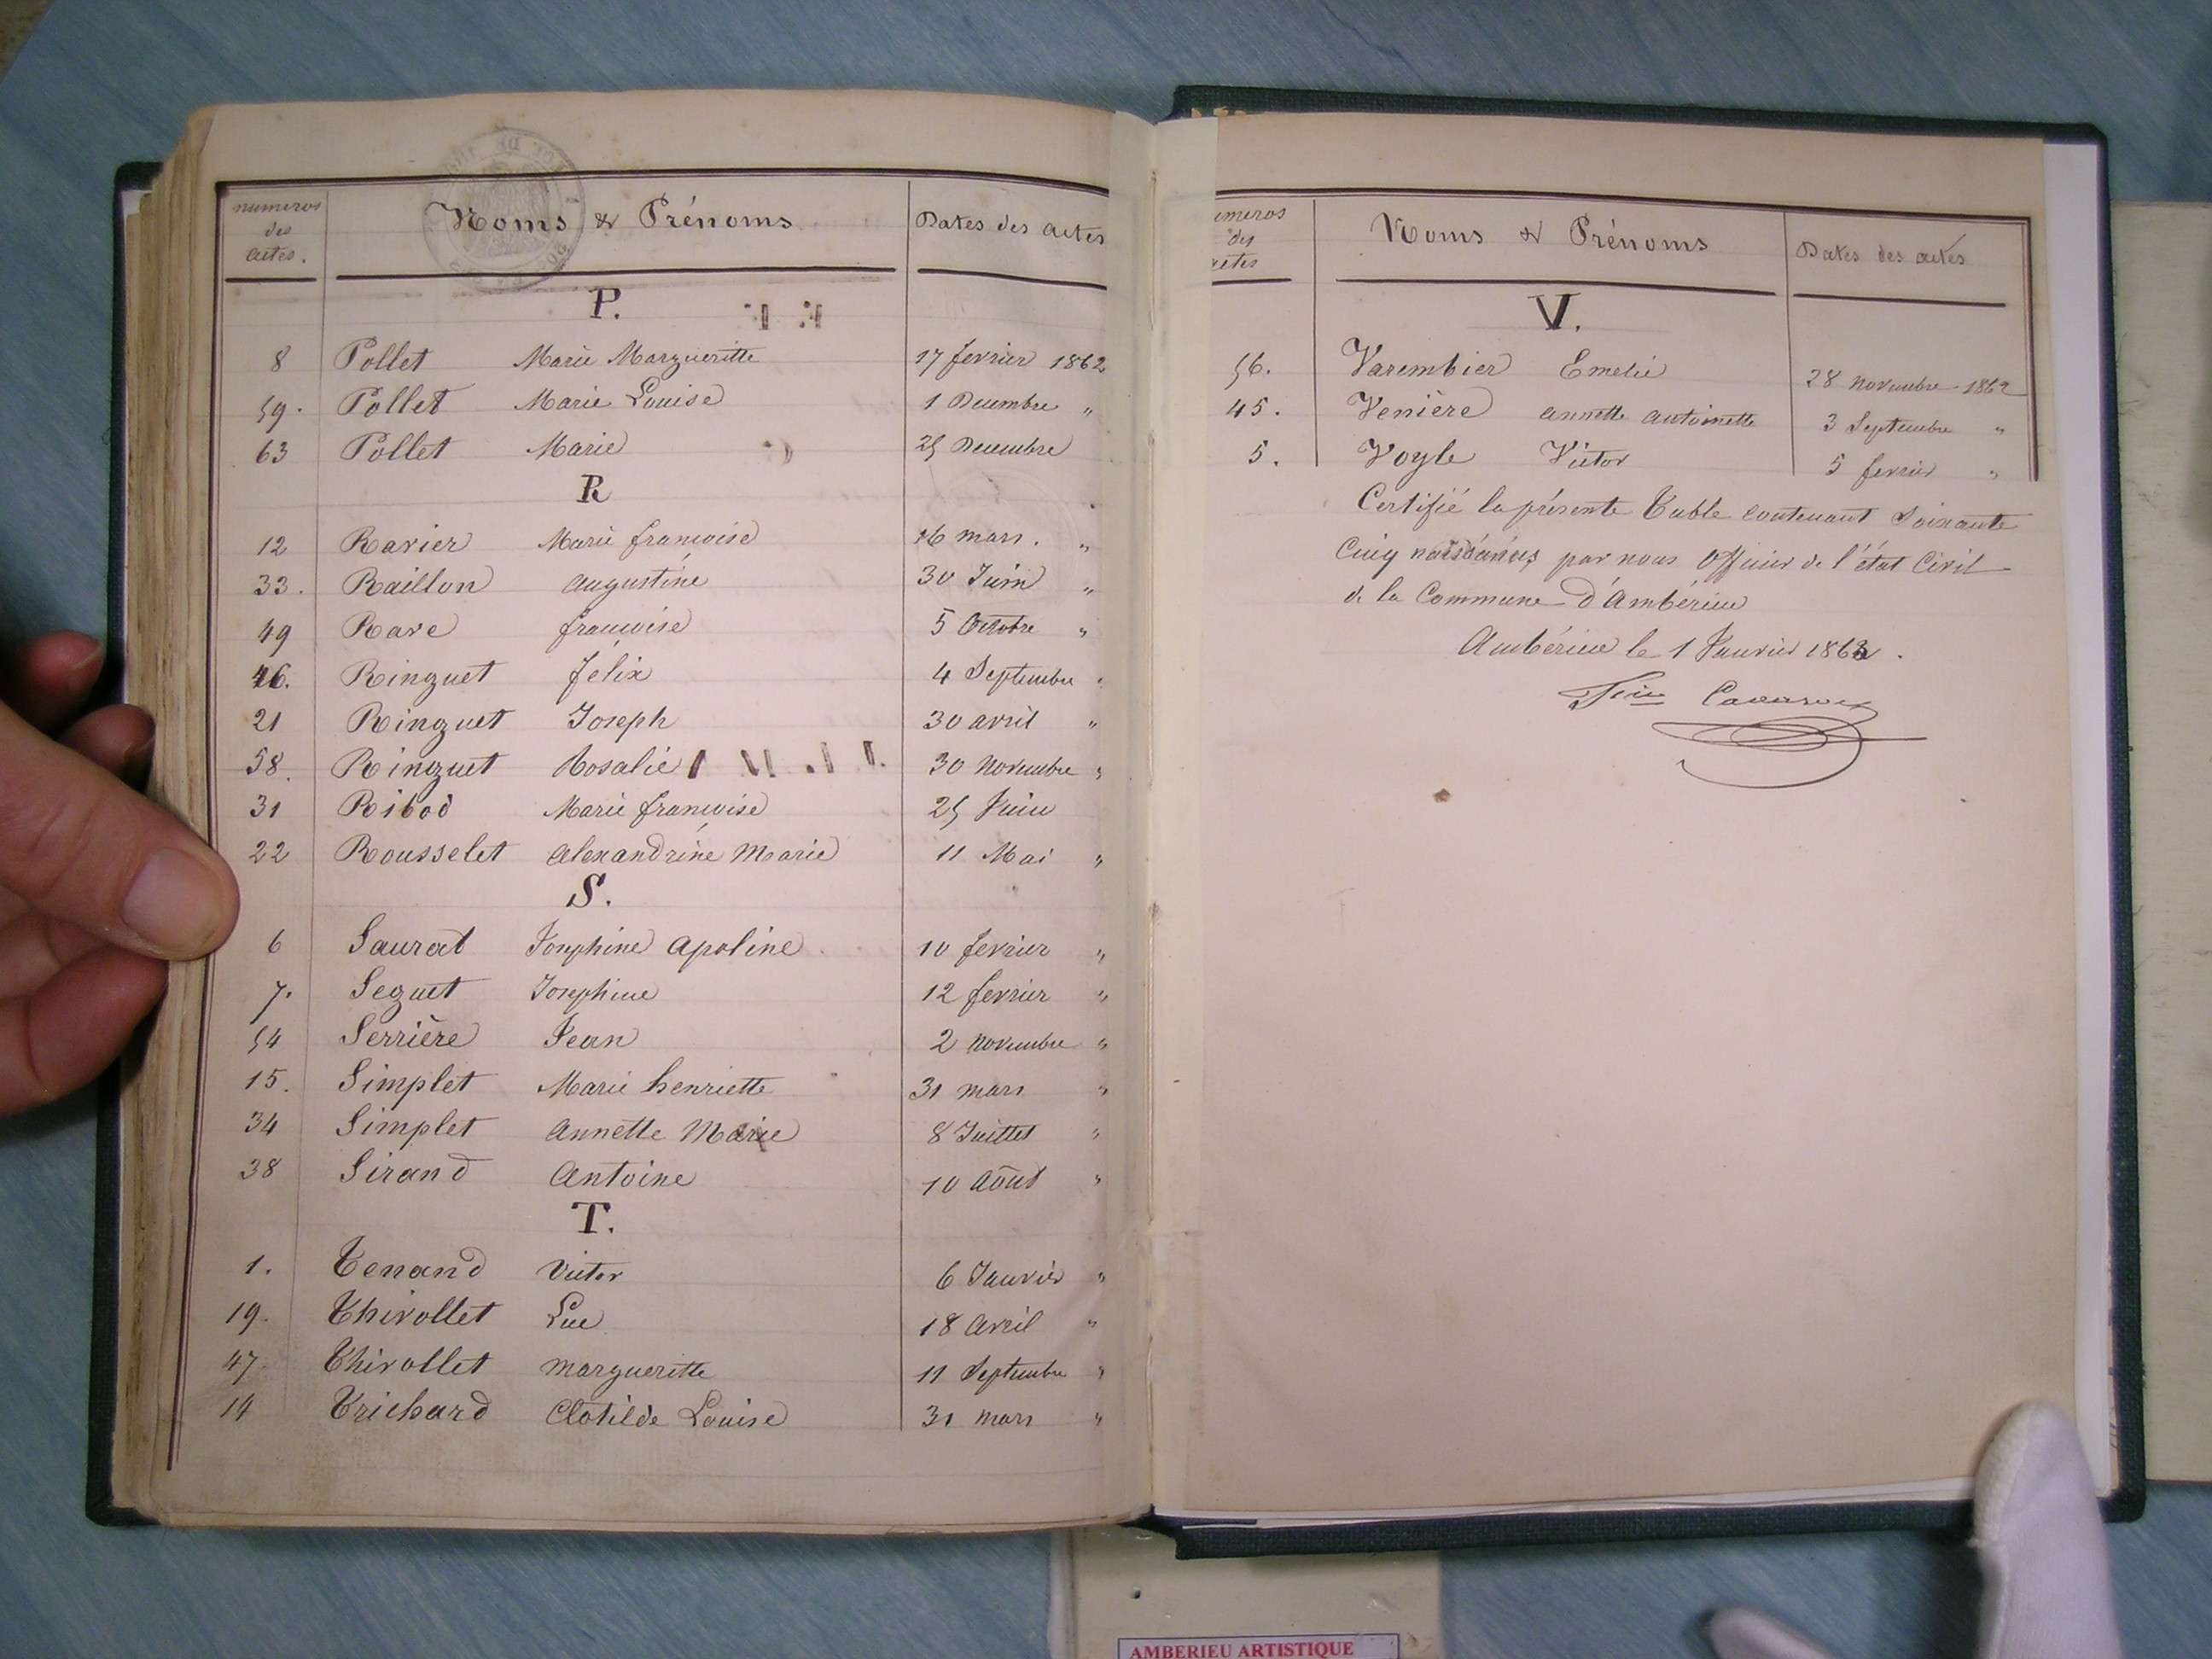 numeros
des
actes.
Noms & Prénoms
Dates des actes
P.
8 Pollet Marie Margueritte 17 fevrier 1862
59. Pollet Marie Louise 1 Decembre "
63 Pollet Marie 25 Decembre
R
12 Ravier Marie francoise 16 mars. "
33. Raillon augustine 30 Juin "
49 Rave francoise 5 Octobre "
46. Ringuet félix 4 Septembre "
21 Ringuet Joseph 30 avril "
58. Ringuet Rosalie 30 Novembre "
31 Ribod Marie francoise 25 Juin
22 Rousselet alexandrine Marie 11 Mai "
S.
6 Saurat Josephine apoline 10 fevrier "
7. Seguet Josephine 12 fevrier "
54 Serrière Jean 2 Novembre "
15. Simplet Marie henriette 31 mars "
34 Simplet annette Marie 8 Juillet "
38 Sirand Antoine 10 Août "
T.
1. Tenand Victor 6 Janvier "
19. Thivollet Luc 18 Avril "
47. Thivollet margueritte 11 Septembre "
14 Trichard Clotilde Louise 31 mars "
umeros
des
actes
Noms & Prénoms
Dates des actes
V.
56. Varembier Emelie 28 novembre 1862
45. Venière annette antoinette 3 Septembre "
5. Voyle Victor 5 fevrier "
Certifié la présente Table contenant Soixante
Cinq naissances par nous Officier de l'état Civil
de la Commune d'Ambérieu
Ambérieu le 1 Janvier 1863.
AMBERIEU ARTISTIQUE